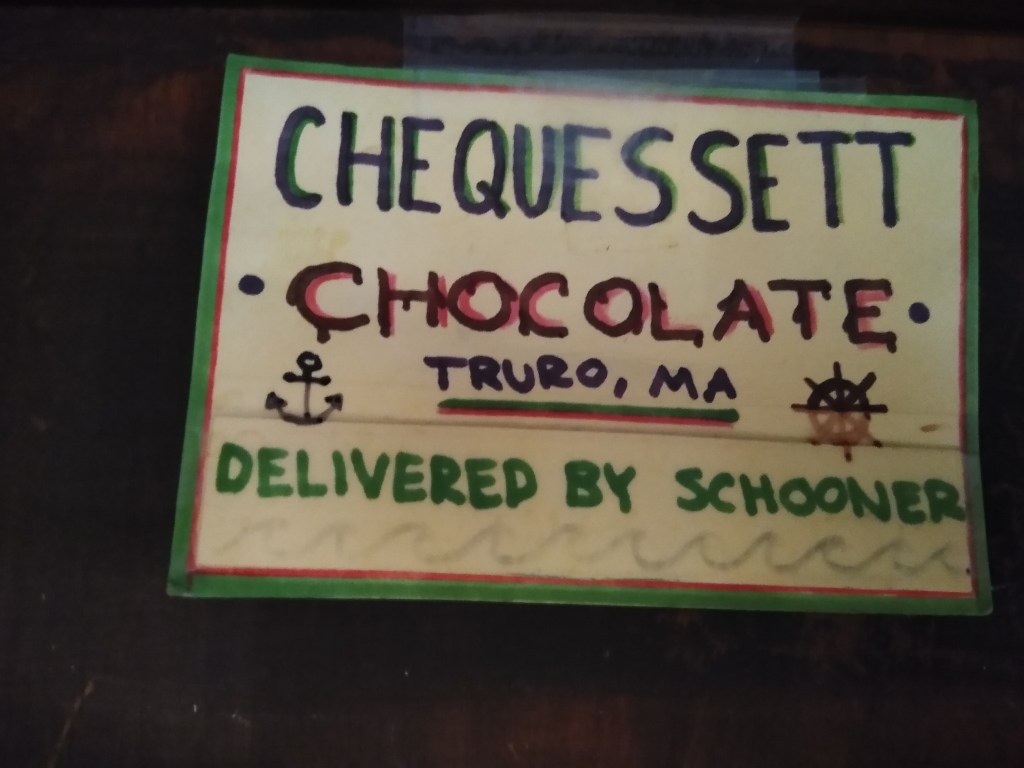 CHEQUESSETT
• CHOCOLATE •
TRURO, MA
DELIVERED BY SCHOONER